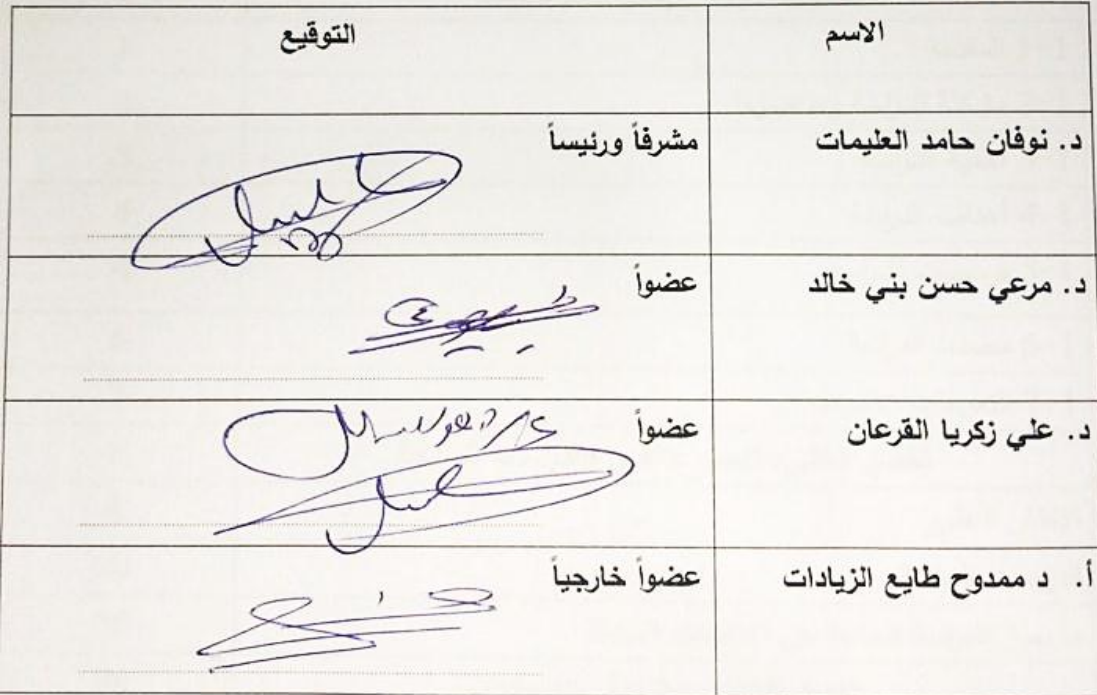 الاسم
التوقيع
د. نوفان حامد العليمات
مشرفاً ورئيساً
د. مرعي حسن بني خالد
عضواً
د. علي زكريا القرعان
عضواً
أ. د ممدوح طايع الزيادات
عضواً خارجياً